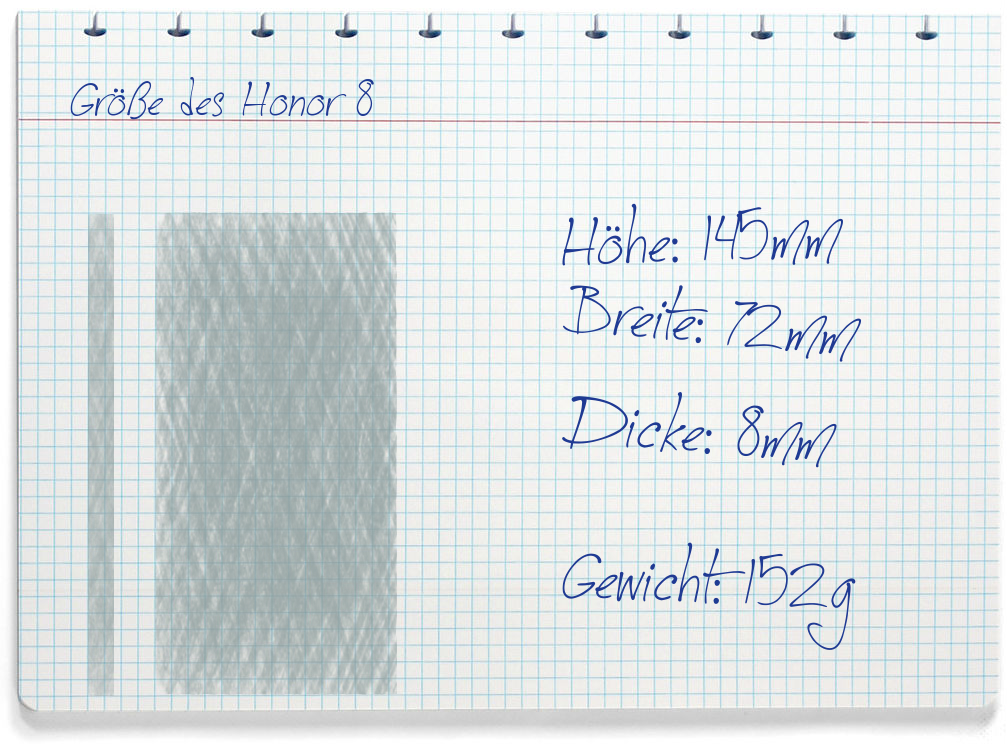 Größe des Honor 8
Höhe: 145mm
Breite: 72mm
Dicke: 8mm
Gewicht: 152g